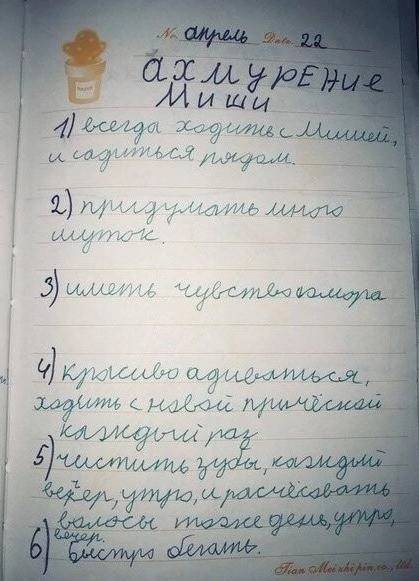 No. апрель Date. 22
АХМУРЕНИЕ
МИШИ
1) всегда ходить с Мишей,
и садиться рядом.
2) придумать много
шуток.
3) иметь чувство юмора
4) красиво адиваться,
ходить с новой причёской
каждый раз
5) чистить зубы, каждый
вечер, утро, и расчёсовать
волосы тоже день, утро,
вечер.
6) Быстро бегать.
Tian Mei zhi pin co., ltd.